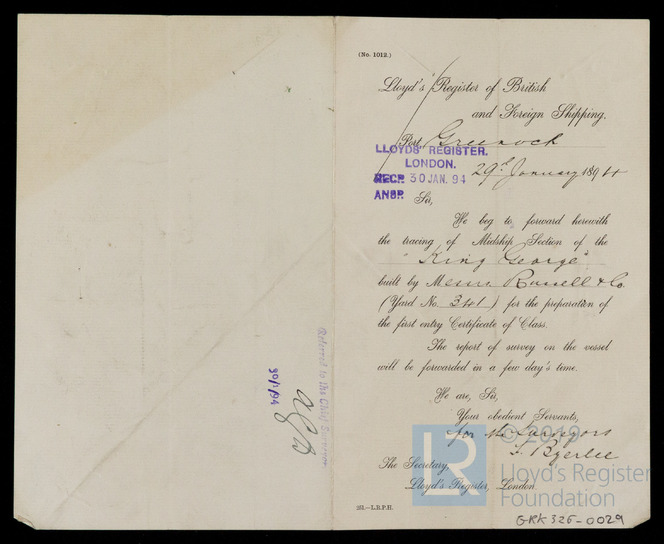 (No. 1012.)
Lloyd's Register of British
and Foreign Shipping.
Port Greenock
LLOYDS' REGISTER.
LONDON.
RECD 30 JAN. 94
ANSD.
29th January 1894
Sir,
We beg to forward herewith
the tracing of Midship Section of the
"King George"
built by Messrs Russell & Co.
(Yard No. 341) for the preparation of
the first entry Certificate of Class.
The report of survey on the vessel
will be forwarded in a few day's time.
We are, Sir,
Your obedient Servants,
for the Surveyors
The Secretary,
Lloyd's Register, London.
251.—L.R.P.H.
Referred to the Chief Surveyor
30/1/94
© 2019
LR
Lloyd's Register
Foundation
GRK326-0029